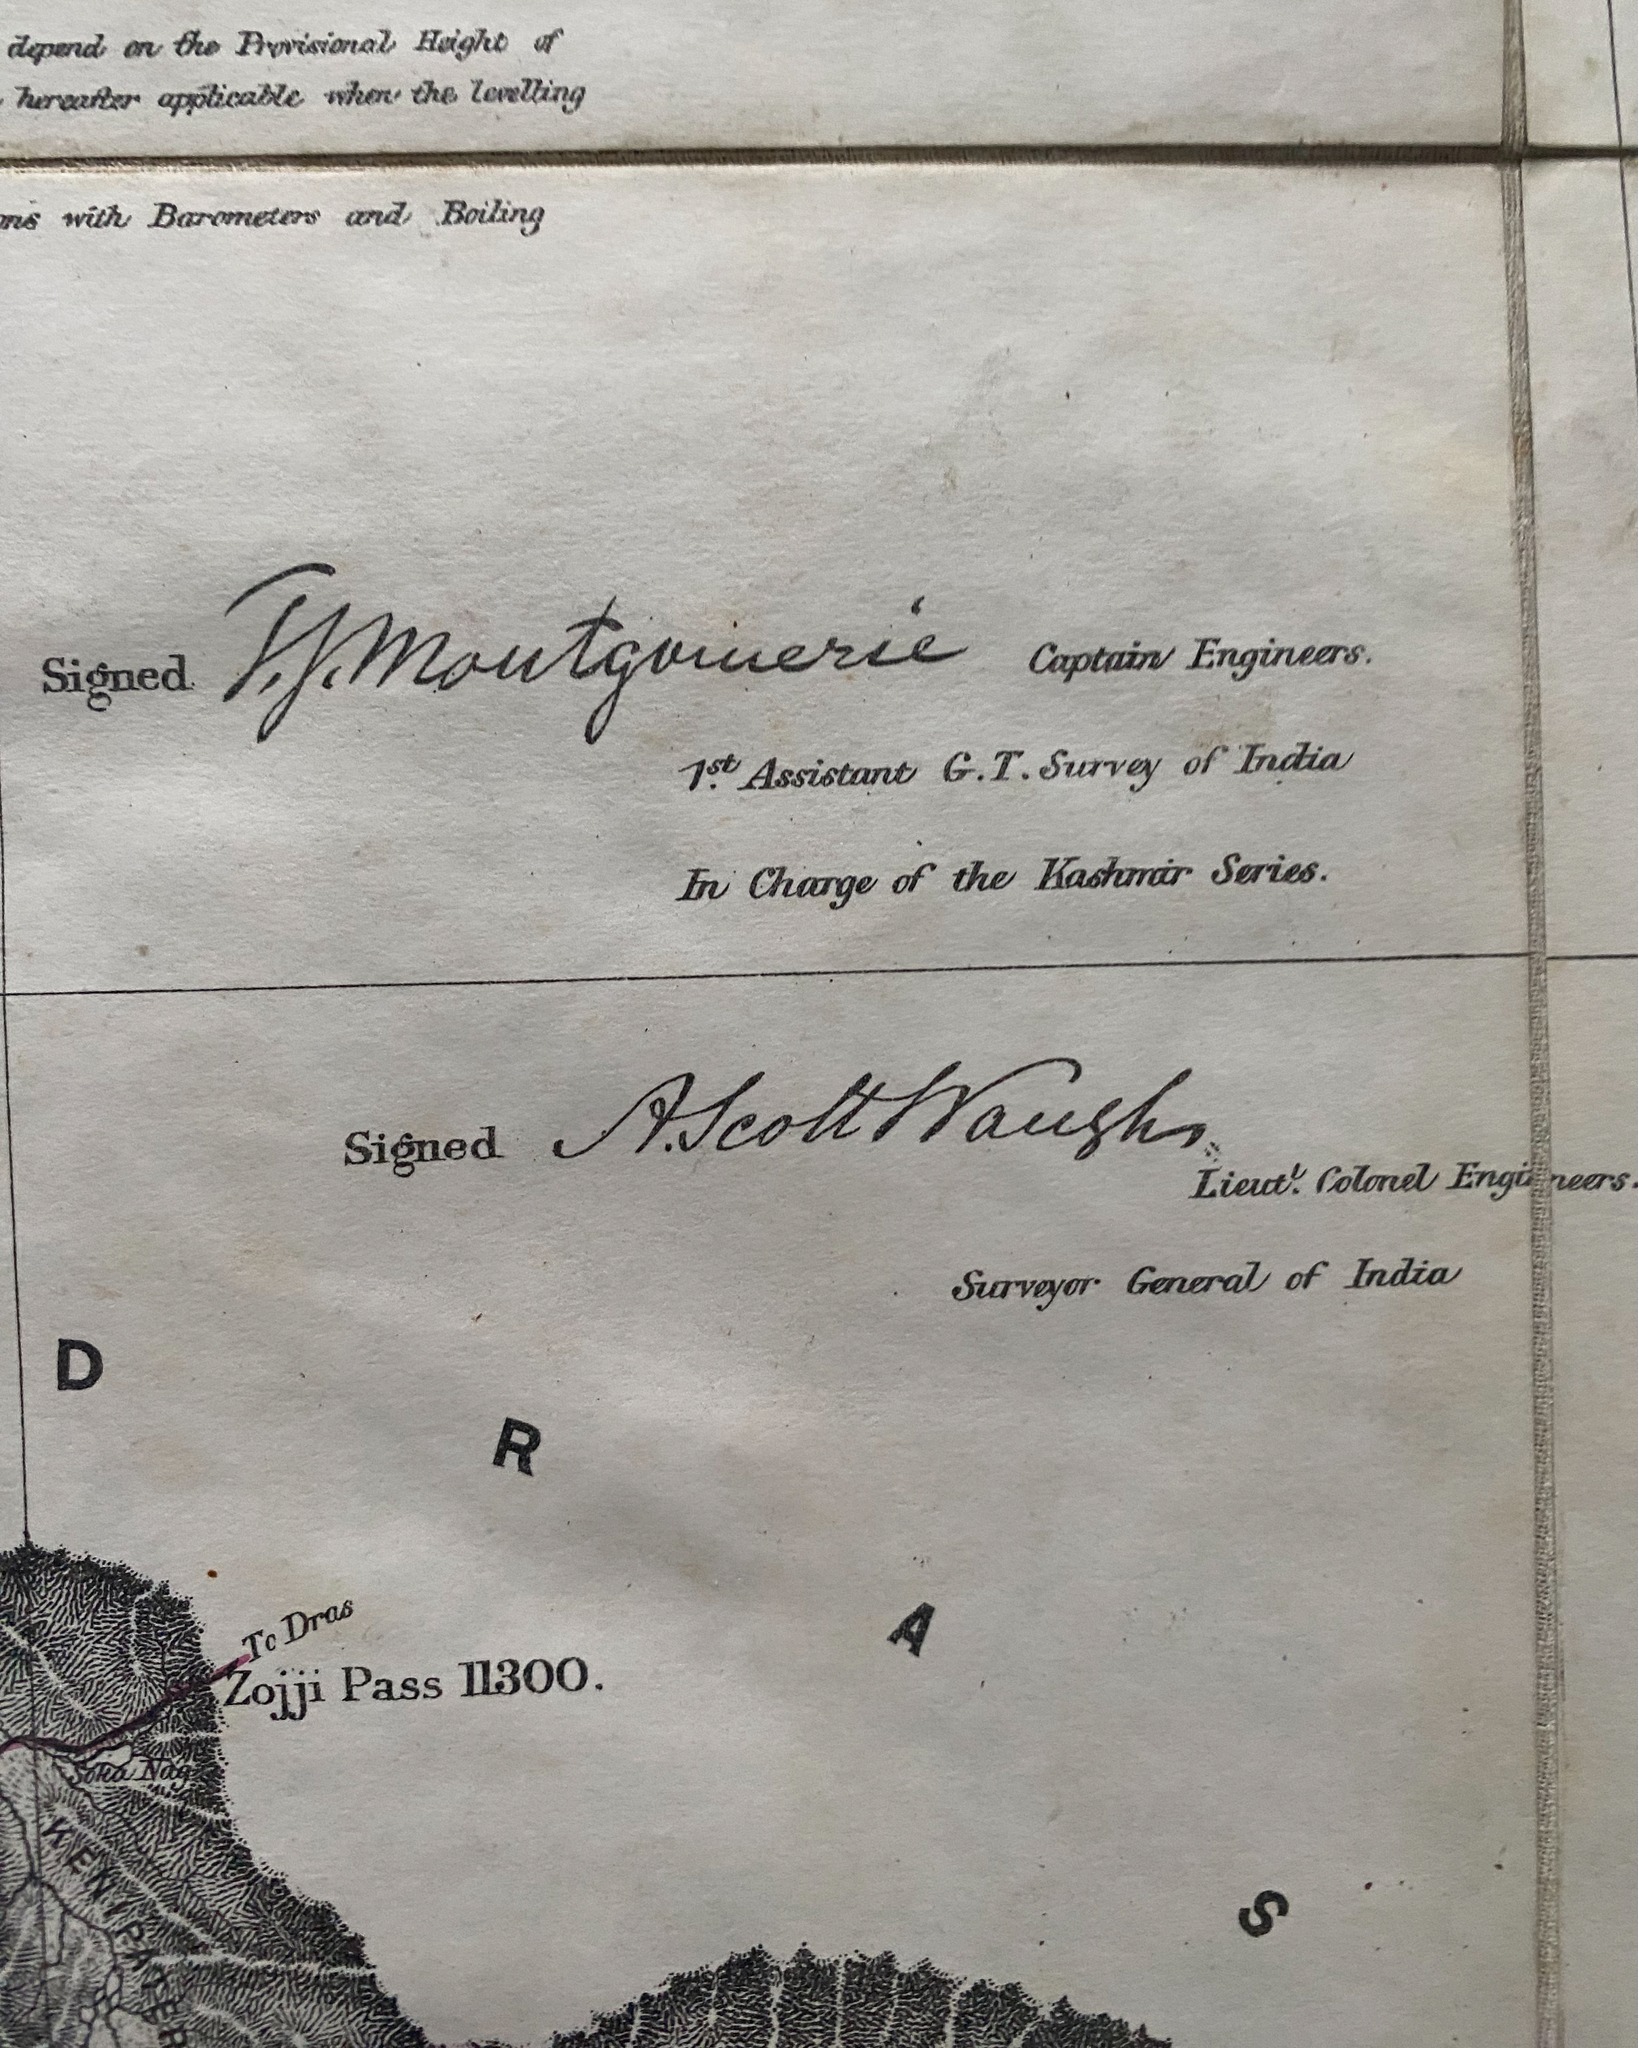 depend on the Provisional Height of
hereafter applicable when the levelling
with Barometers and Boiling
Signed T.G. Montgomerie Captain Engineers.
1st. Assistant G.T. Survey of India
In Charge of the Kashmir Series.
Signed A. Scott Waugh
Lieut.t Colonel Engineers.
Surveyor General of India
D R A S
To Dras
Zojji Pass 11300.